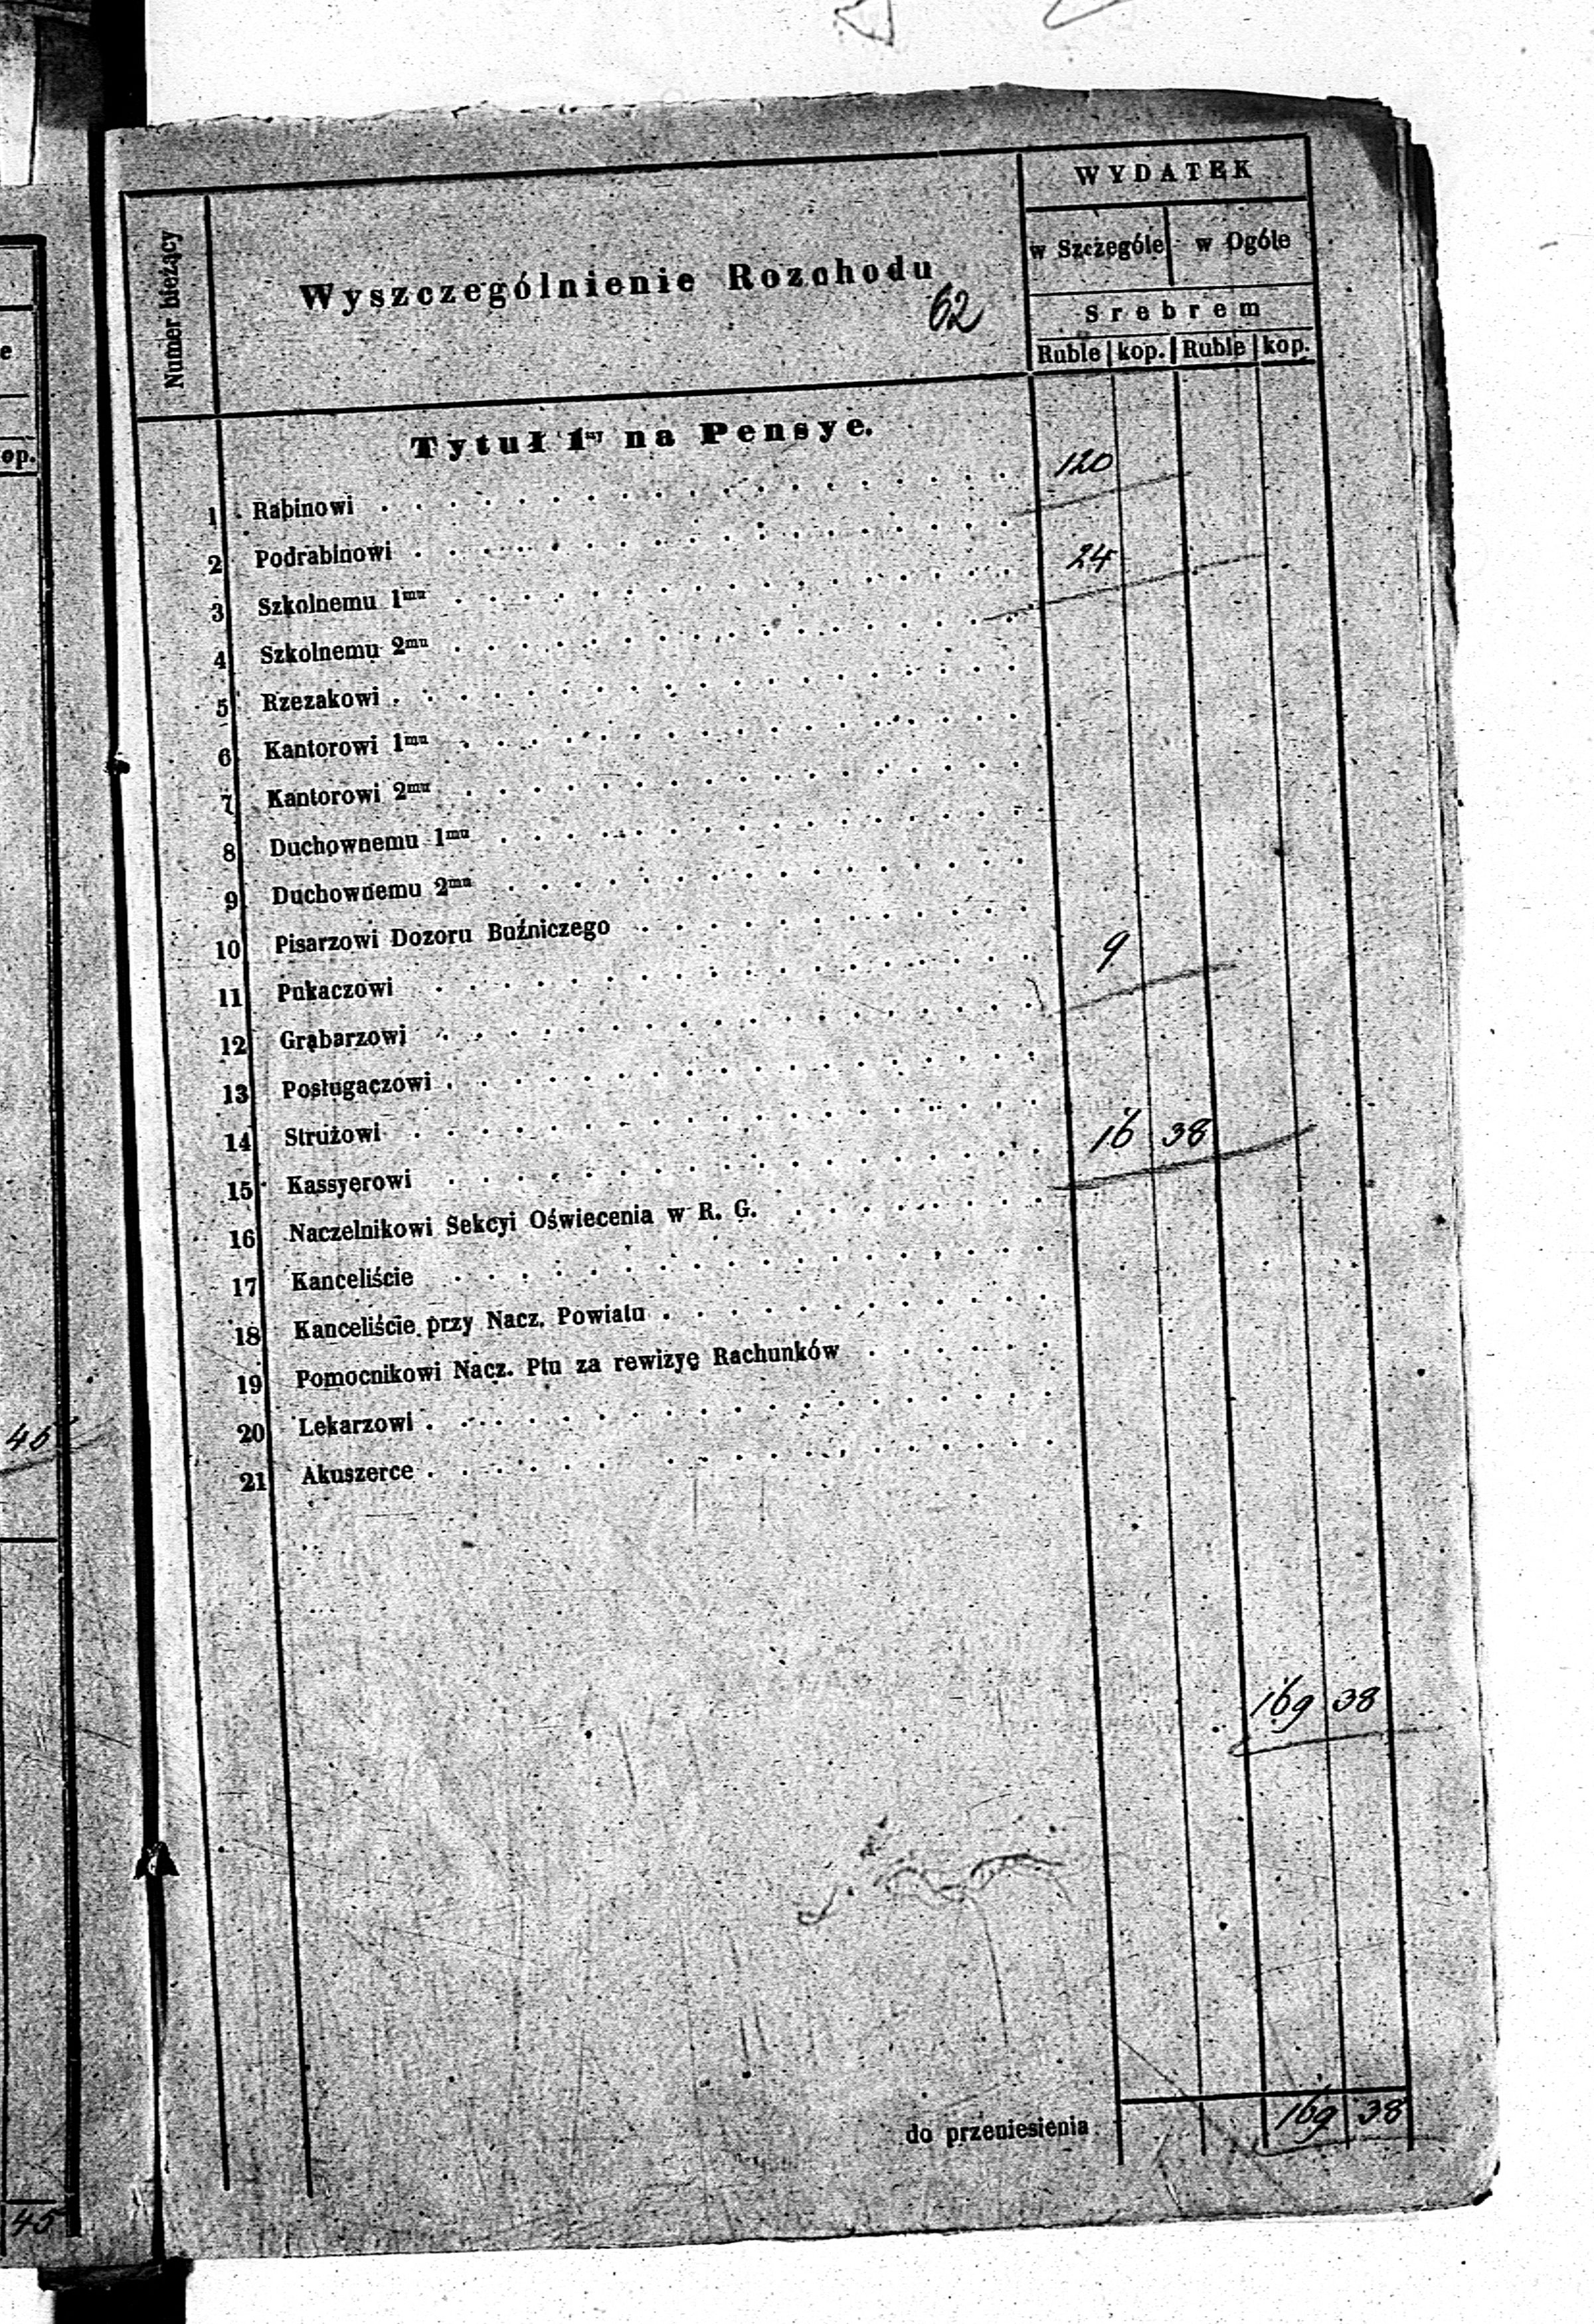 WYDATEK
Numer bieżący
Wyszczególnienie Rozchodu
w Szczególe w Ogóle
62
Srebrem
Ruble kop. Ruble kop.
Tytuł 1szy na Pensye.
1 Rabinowi . . . . . . . . . . . . . . . . . . . 120
2 Podrabinowi . . . . . . . . . . . . . . . . . .
3 Szkolnemu 1mu . . . . . . . . . . . . . . . . . 24
4 Szkolnemu 2mu . . . . . . . . . . . . . . . . .
5 Rzezakowi . . . . . . . . . . . . . . . . . . .
6 Kantorowi 1mu . . . . . . . . . . . . . . . . .
7 Kantorowi 2mu . . . . . . . . . . . . . . . . .
8 Duchownemu 1mu . . . . . . . . . . . . . . . .
9 Duchownemu 2mu . . . . . . . . . . . . . . . .
10 Pisarzowi Dozoru Buźniczego . . . . . . . . . . . .
11 Pukaczowi . . . . . . . . . . . . . . . . . . 9
12 Grabarzowi . . . . . . . . . . . . . . . . . .
13 Posługaczowi . . . . . . . . . . . . . . . . . .
14 Strużowi . . . . . . . . . . . . . . . . . . .
15 Kassyerowi . . . . . . . . . . . . . . . . . . 16 38
16 Naczelnikowi Sekcyi Oświecenia w R. G. . . . . . . . .
17 Kanceliście . . . . . . . . . . . . . . . . . .
18 Kanceliście przy Nacz. Powiatu . . . . . . . . . . . .
19 Pomocnikowi Nacz. Ptu za rewizyę Rachunków . . . . . .
20 Lekarzowi . . . . . . . . . . . . . . . . . . .
21 Akuszerce . . . . . . . . . . . . . . . . . . .
169 38
do przeniesienia 169 38
e
op.
45
45